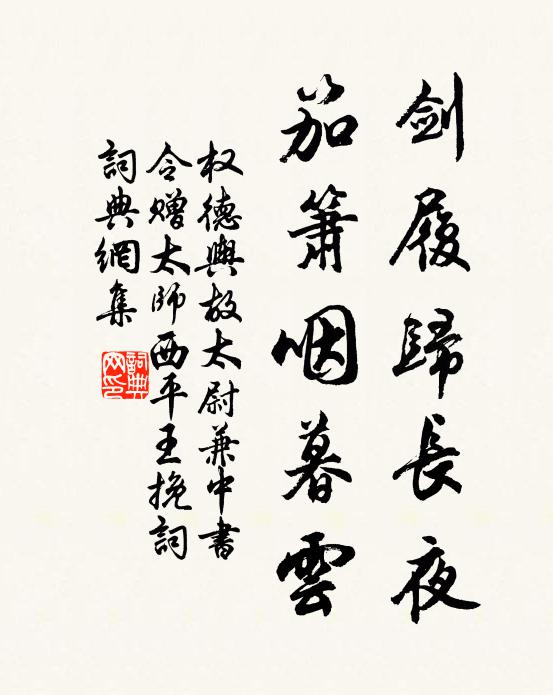 劍履歸長夜
笳簫咽暮雲
权德輿故太尉兼中書
令贈太師西平王挽詞
詞典網集
詞典
网印